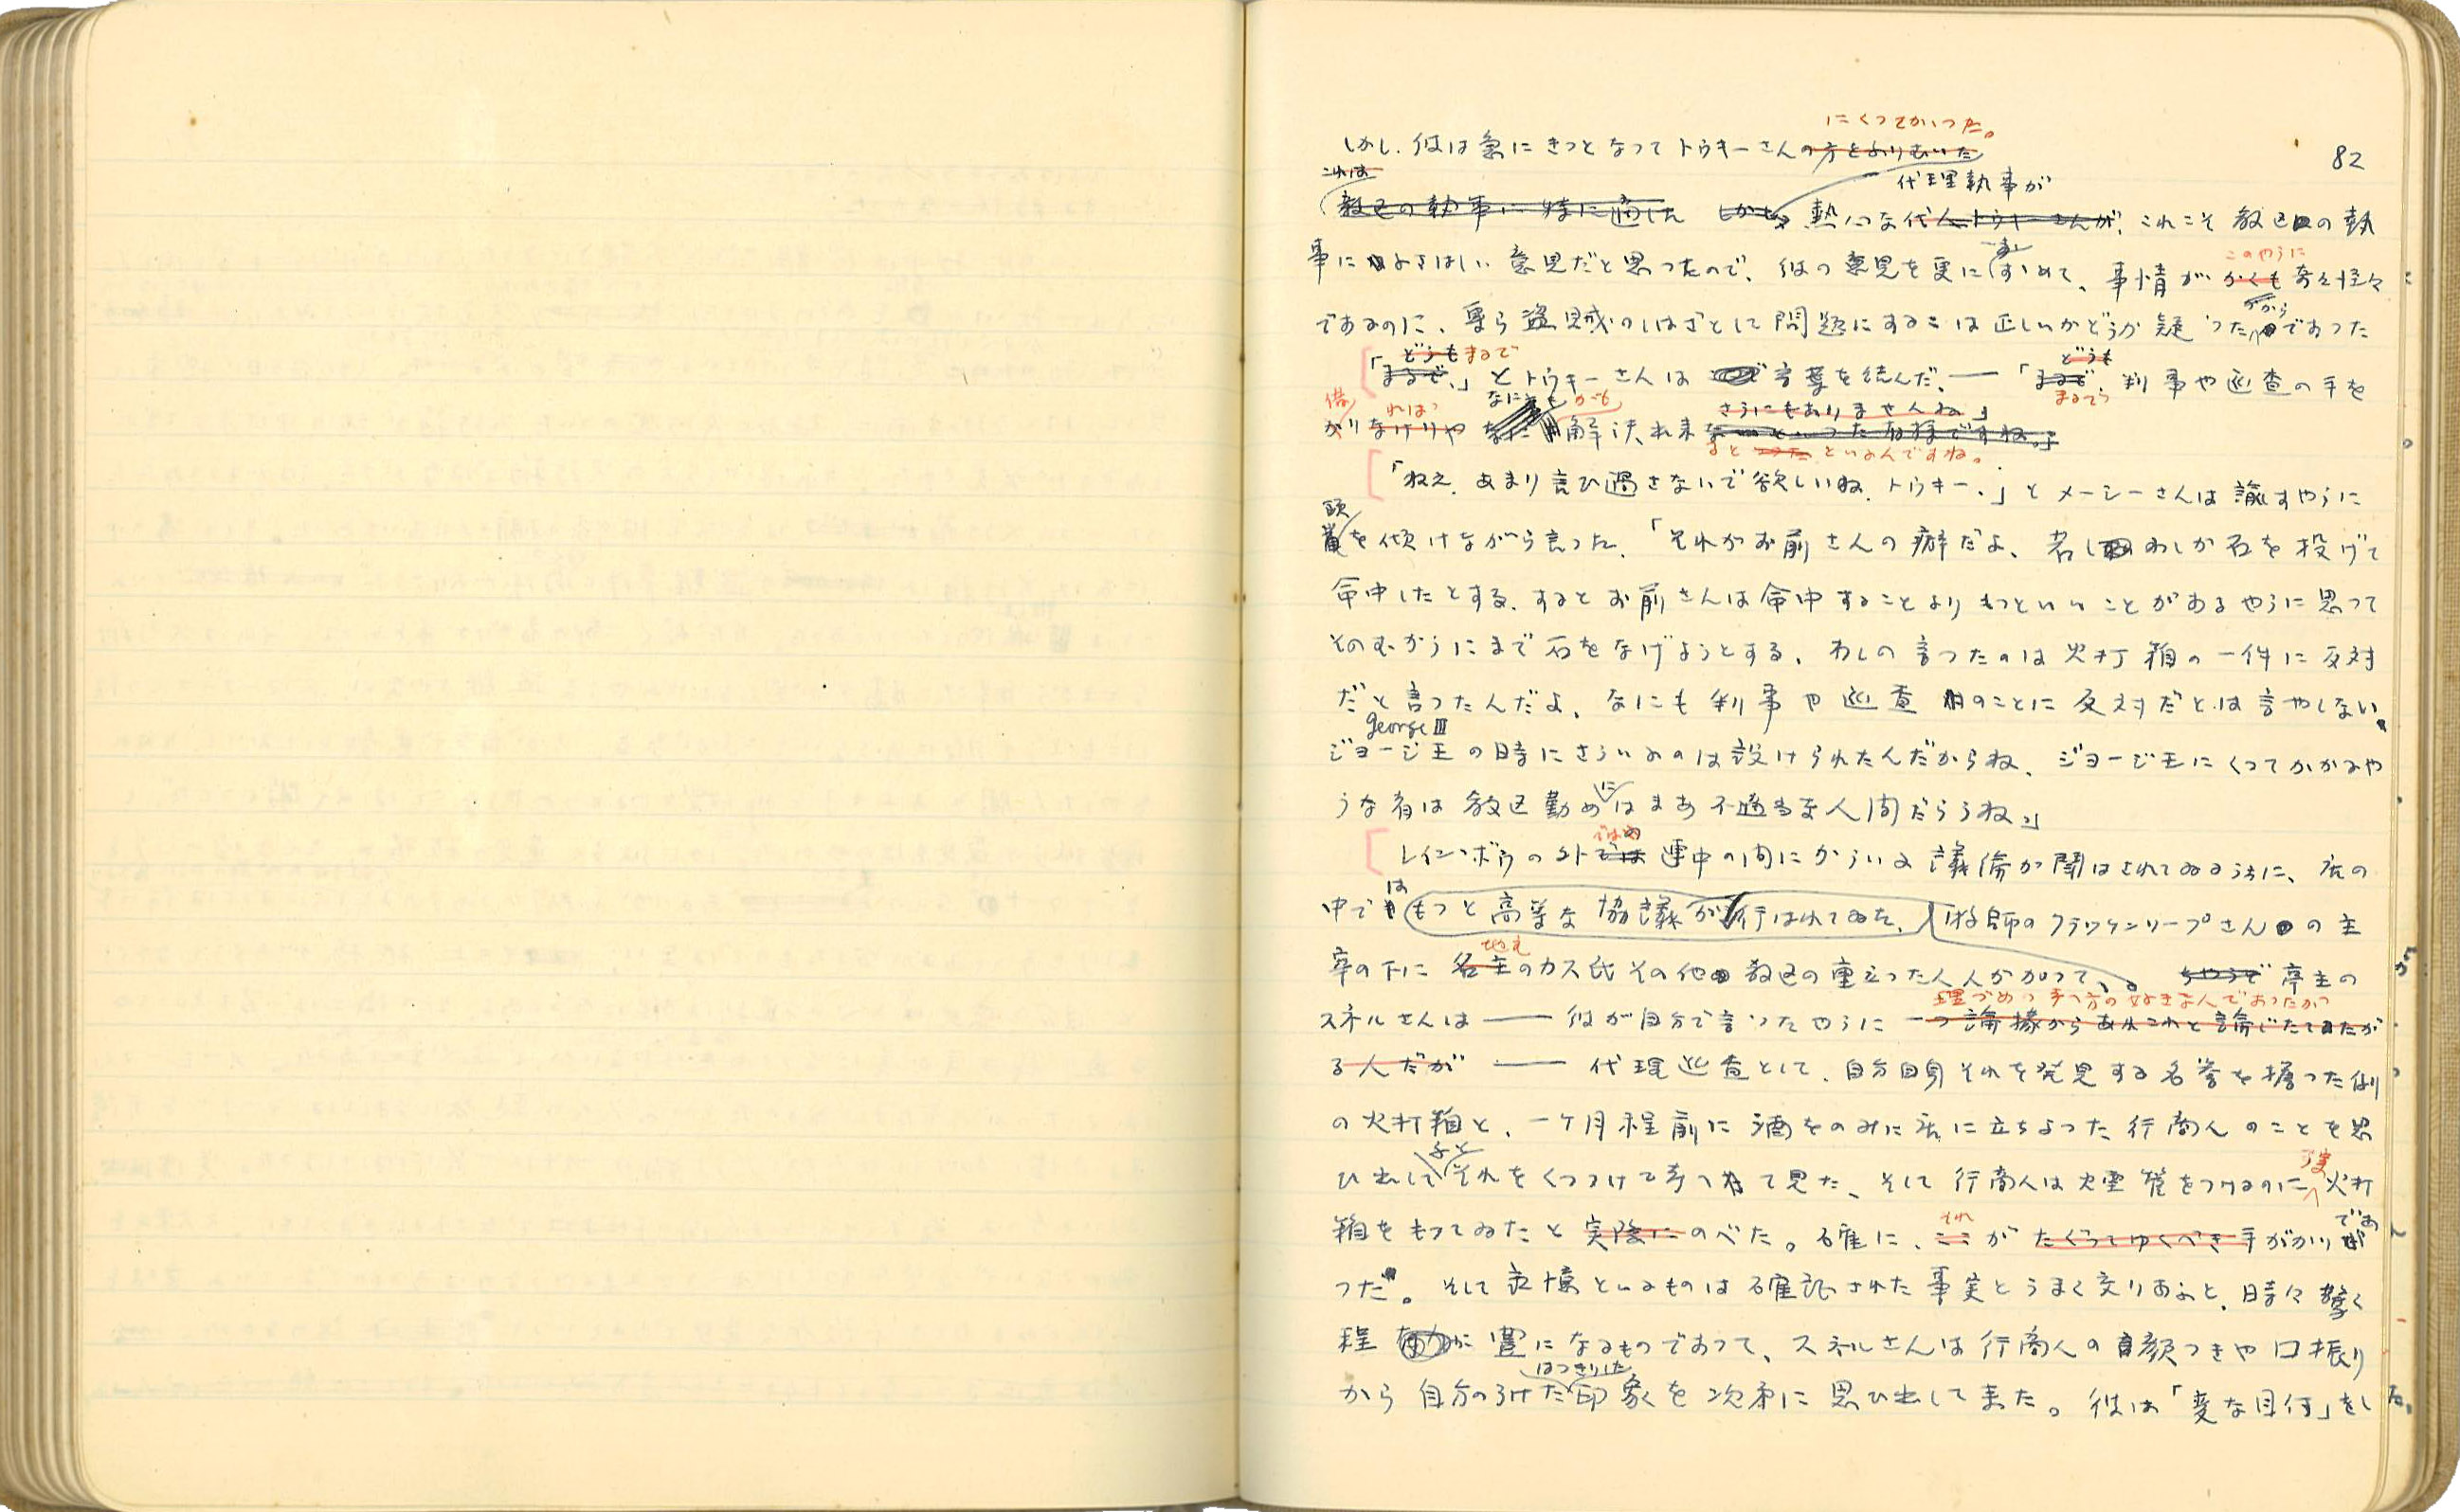 82
にくつてかかつた。
しかし、彼は急にきつとなつてトウキーさんの方をふりむいた
これは
代理執事が
教区の執事に特に適した しかも 熱心な代人トウキーさんが、これこそ教区の執
事にふさはしい意見だと思つたので、彼の意見を更にすすめて、事情が かくも 奇々怪々
このやうに
であるのに、専ら盗賊のしはざとして問題にするは正しいかどうか疑つた であつた
からで
どうも まるで
「まるで、」とトウキーさんは 言葉を続んだ、——「まるで、判事や巡査の手を
どうも
まるで
借 れば なにも
かりなけりや なに 解決出来 ないといつた有様ですね。」
さうにもありませんね」
といふんですね。
「ねえ、あまり言ひ過さないで欲しいね、トウキー、」とメーシーさんは諭すやうに
頭
を傾けながら言つた、「それがお前さんの癖だよ、若しわしが石を投げて
命中したとする、するとお前さんは命中することよりもつといいことがあるやうに思つて
そのむかうにまで石をなげようとする、わしの言つたのは火打箱の一件に反対
だと言つたんだよ、なにも判事や巡査のことに反対だとは言やしない。
George III
ジョージ王の時にさういふのは設けられたんだからね、ジョージ王にくつてかかるや
うな者は教区勤めにはまあ不適当な人間だらうね」
レインボウの外では連中の間にかういふ議論が闘はされてゐるうちに、店の
中では もつと高等な協議が行はれてゐた、牧師のクラッケンソープさんの主
宰の下に 名主のカス氏その他教区の重立つた人人が加つて、 亭主の
地主
理づめの考へ方の好きな人であつたが
スネルさんは——彼が自分で言つたやうに 一つ論拠からあれこれと論じたてたが
る人だが——代理巡査として、自分自身それを発見する名誉を握つた例
の火打箱と、一ケ月程前に酒をのみに店に立ちよつた行商人のことを思
ひ出して それをくつつけて考へて見た、そして行商人は火煙管をつけるのに 火打
箱をもつてゐたと 実際に のべた。確に、ここが たぐつてゆくべき手がかりであ
それ
つた。そして記憶といふものは確認された事実とうまく交りあふと、時々驚く
程 豊になるものであつて、スネルさんは行商人の顔つきや口振り
はつきりした
から自分のうけた印象を次第に思ひ出して来た。彼は「変な目付」をした。